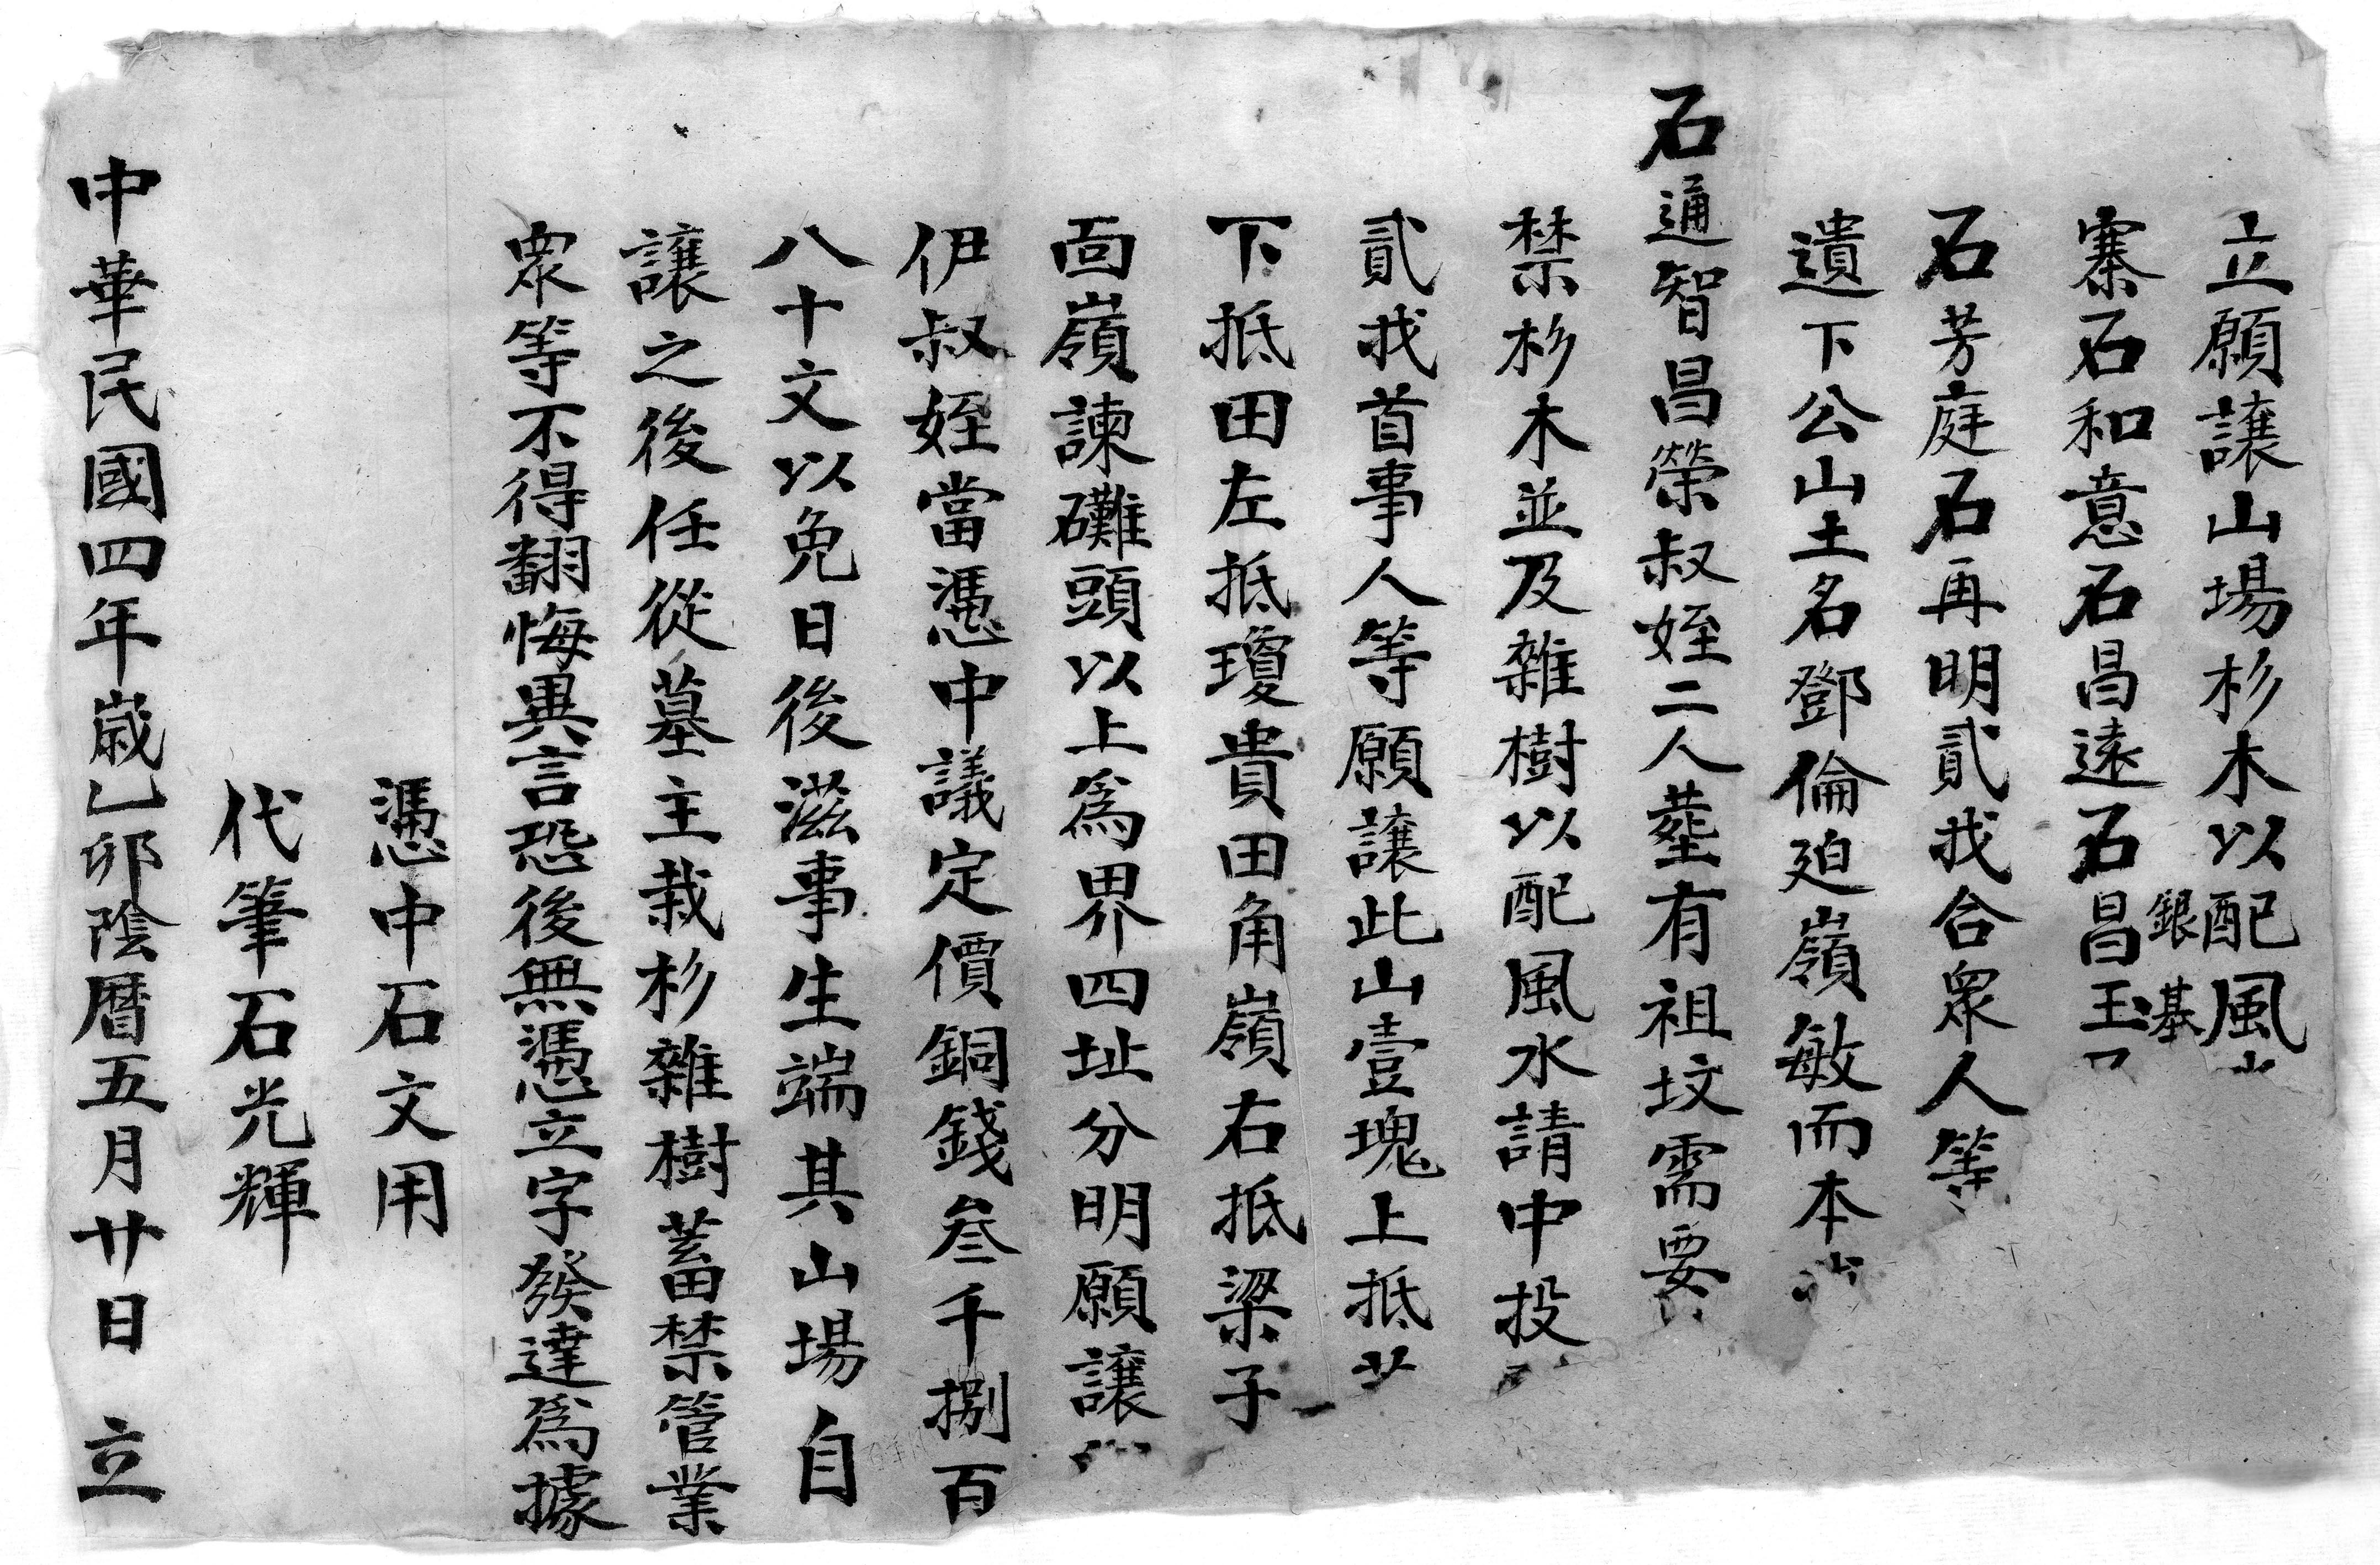 立願讓山場杉木以配風
銀基
寨石和意石昌遠石昌玉
石芳庭石再明貳找合衆人等
遺下公山土名鄧倫廹嶺敏而本
石通智昌榮叔姪二人塟有祖坟需要
禁杉木並及雜樹以配風水請中投
貳找首事人等願讓此山壹瑰上抵
下抵田左抵瓊貴田角嶺右抵梁子
面嶺諫㘓頭以上為界四址分明願讓
伊叔姪當憑中議定價銅錢叁千捌百
八十文以免日後滋事生端其山場自
讓之後任從墓主栽杉雜樹蓄禁管業
衆等不得翻悔異言恐後無憑立字發達為據
憑中石文用
代筆石光輝
中華民國四年歲乙卯陰曆五月廿日立